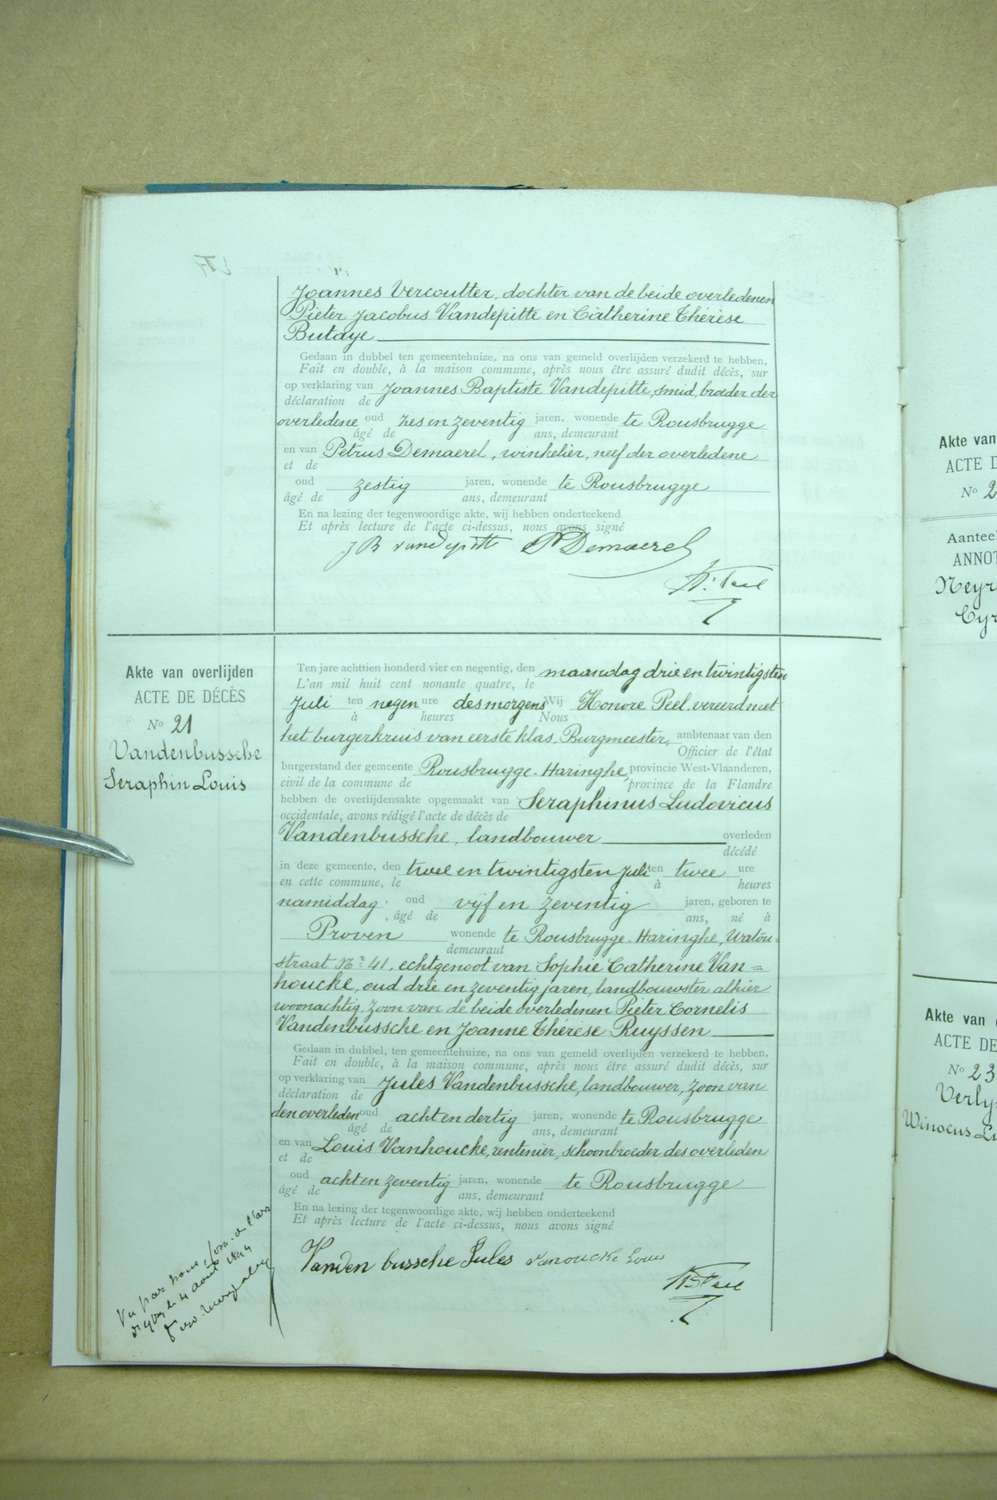 Joannes Vercoutter, dochter van de beide overledenen
Pieter Jacobus Vandepitte en Catherine Thérèse
Butaye
Gedaan in dubbel ten gemeentehuize, na ons van gemeld overlijden verzekerd te hebben,
Fait en double, à la maison commune, après nous être assuré dudit décès, sur
op verklaring van Joannes Baptiste Vandepitte, smid, broeder der
déclaration de
overledene oud zes en zeventig jaren, wonende te Rousbrugge
âgé de ans, demeurant
en van Petrus Demaerel, winkelier, neef der overledene
et de
oud zestig jaren, wonende te Rousbrugge
âgé de ans, demeurant
En na lezing der tegenwoordige akte, wij hebben onderteekend
Et après lecture de l'acte ci-dessus, nous avons signé
J B vandepitte P Demaerel
H. Peel
Akte van overlijden
ACTE DE DÉCÈS
No 21
Vandenbussche
Seraphin Louis
Ten jare achttien honderd vier en negentig, den maandag drie en twintigsten
L'an mil huit cent nonante quatre, le
Juli ten negen ure des morgens Wij Honoré Peel, vereerd met
à heures Nous
het burgerkruis van eerste klas, Burgmeester, ambtenaar van den
Officier de l'état
burgerstand der gemeente Rousbrugge-Haringhe, provincie West-Vlaanderen,
civil de la commune de province de la Flandre
hebben de overlijdensakte opgemaakt van Seraphinus Ludovicus
occidentale, avons rédigé l'acte de décès de
Vandenbussche, landbouwer overleden
décédé
in deze gemeente, den twee en twintigsten juli ten twee ure
en cette commune, le à heures
namiddag oud vijf en zeventig jaren, geboren te
âgé de ans, né à
Proven wonende te Rousbrugge-Haringhe, Watou-
demeurant
straat No 41, echtgenoot van Sophie Catherine Van=
houcke, oud drie en zeventig jaren, landbouwster alhier
woonachtig, zoon van de beide overledenen Pieter Cornelis
Vandenbussche en Joanne Thérèse Ruyssen
Gedaan in dubbel, ten gemeentehuize, na ons van gemeld overlijden verzekerd te hebben,
Fait en double, à la maison commune, après nous être assuré dudit décès, sur
op verklaring van Jules Vandenbussche, landbouwer, zoon van
déclaration de
den overleden oud acht en dertig jaren, wonende te Rousbrugge
âgé de ans, demeurant
en van Louis Vanhoucke, rentenier, schoonbroeder des overleden
et de
oud acht en zeventig jaren, wonende te Rousbrugge
âgé de ans, demeurant
En na lezing der tegenwoordige akte, wij hebben onderteekend
Et après lecture de l'acte ci-dessus, nous avons signé
Vanden bussche Jules Vanoucke Louis
H. Peel
Vu par nous,
le 4 août 1894
Akte van
ACTE D
No 2
Aanteek
ANNOT
Akte van
ACTE DE
No 23
Verly
Winocus Lu